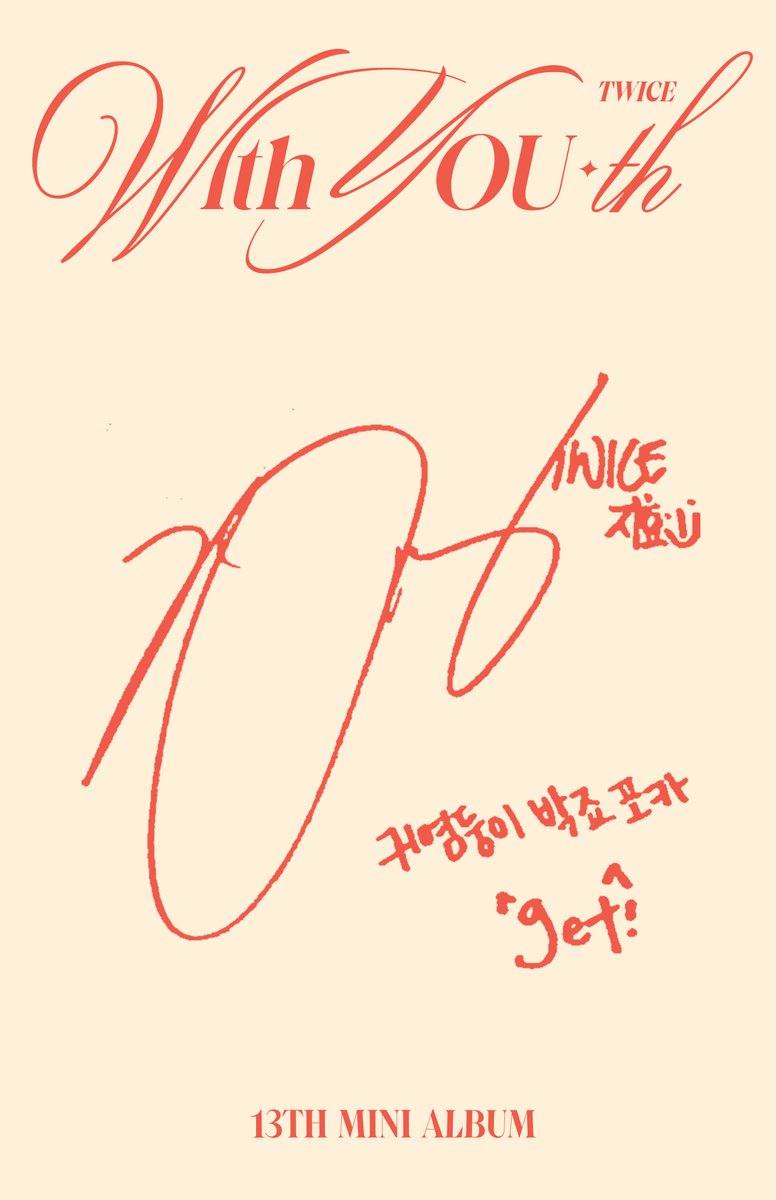 TWICE
With YOU-th
TWICE
지효
귀염둥이 박죠 포카
"get!"
13TH MINI ALBUM